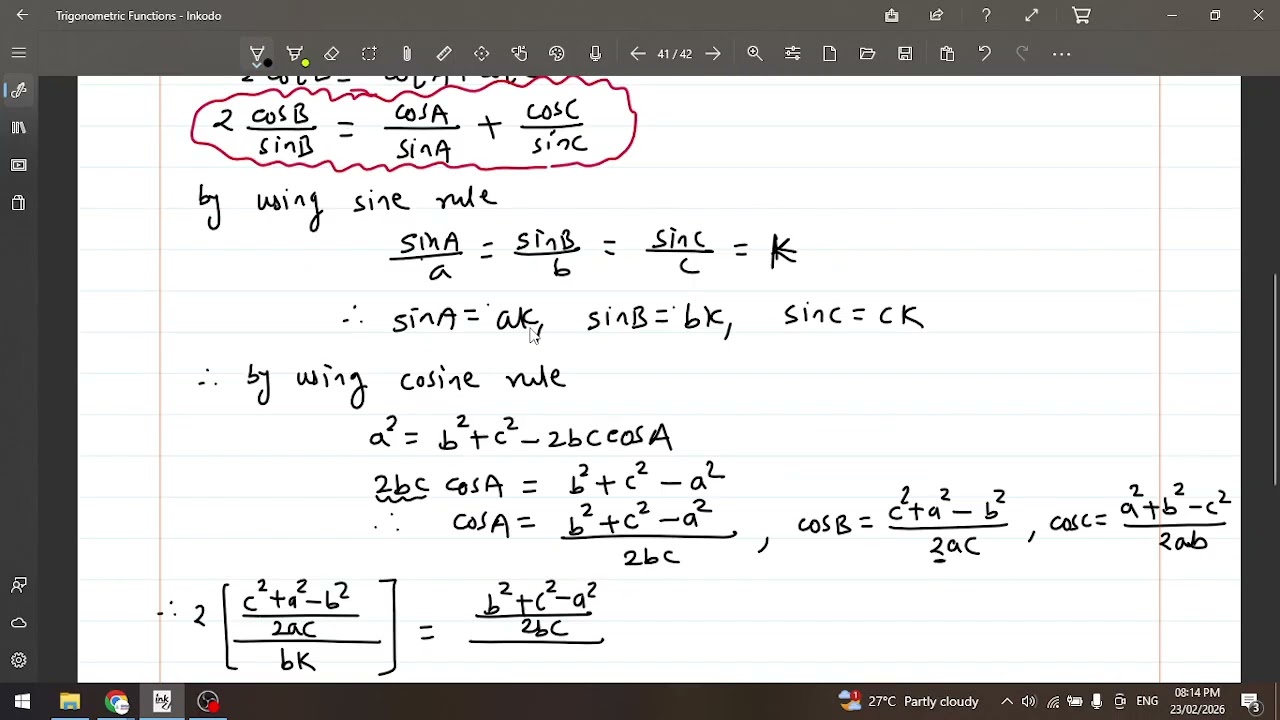 Trigonometric Functions - Inkodo
41 / 42
2 cosB/sinB = cosA/sinA + cosC/sinC
by using sine rule
sinA/a = sinB/b = sinC/c = K
∴ sinA = aK, sinB = bK, sinC = cK
∴ by using cosine rule
a² = b² + c² - 2bc cosA
2bc cosA = b² + c² - a²
∴ cosA = (b² + c² - a²)/2bc , cosB = (c² + a² - b²)/2ac , cosC = (a² + b² - c²)/2ab
∴ 2 [ ((c² + a² - b²)/2ac)/bK ] = (b² + c² - a²)/2bc
27°C Partly cloudy
ENG
08:14 PM
23/02/2026